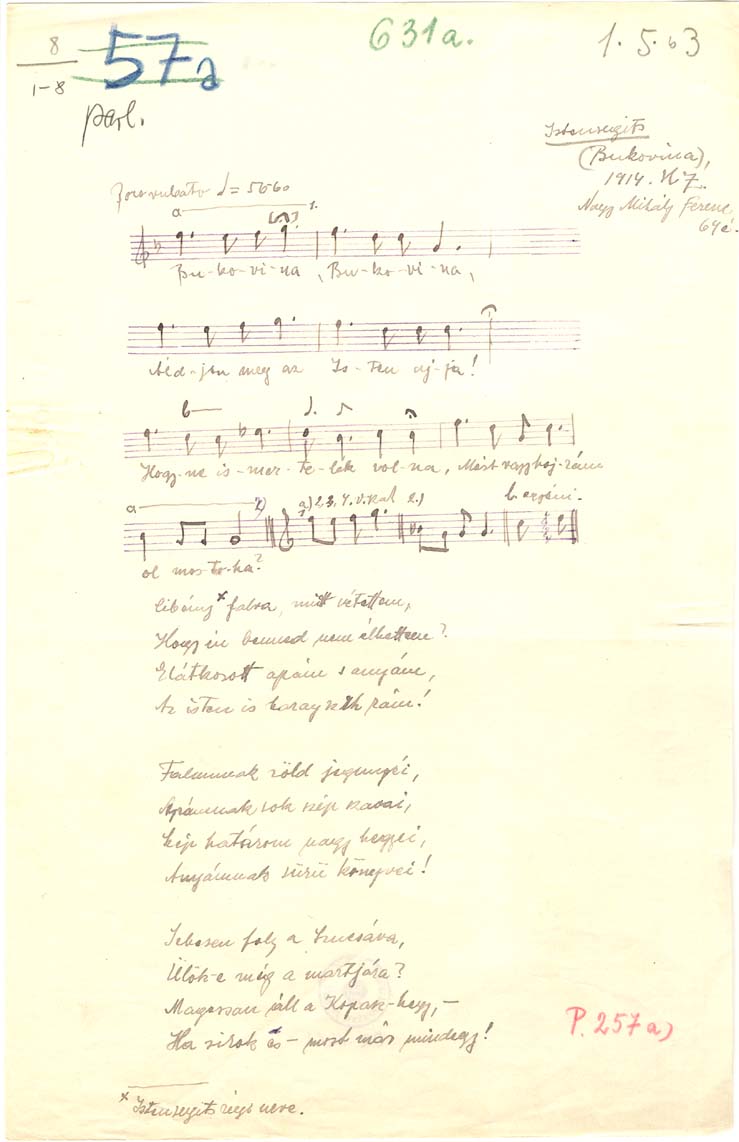 8
1-8
57a
631a.
1. 5. 63
parl.
Istensegits
(Bukovina),
1914. K Z.
Nagy Mihály Ferenc
64 é.
♩ = 56-60
a 1.
Bu-ko-vi-na, Bu-ko-vi-na,
Áld-jon meg az Is-ten uj-ja!
b
Hogy-ne is-mer-te-lek vol-na, Mért vagy hoz-zám
a 2) a) 2. 3. 4. v.kal 2.) b. erzsi-
ol mos-to-ha?
Cibény x falva, mit vétettem,
Hogy én benned nem élhettem?
Elátkozott apám s anyám,
Az isten is haragszik rám!
Falumnak zöld jegenyéi,
Apámnak sok szép szavai,
Szép határom nagy hegyei,
Anyámnak sürü könnyei!
Sebesen foly a Szucsáva,
Ülök-e még a martjára?
Magossan áll a Kopasz-hegy,-
Ha sirok is - most már mindegy!
P. 257 a)
x Istensegits régi neve.